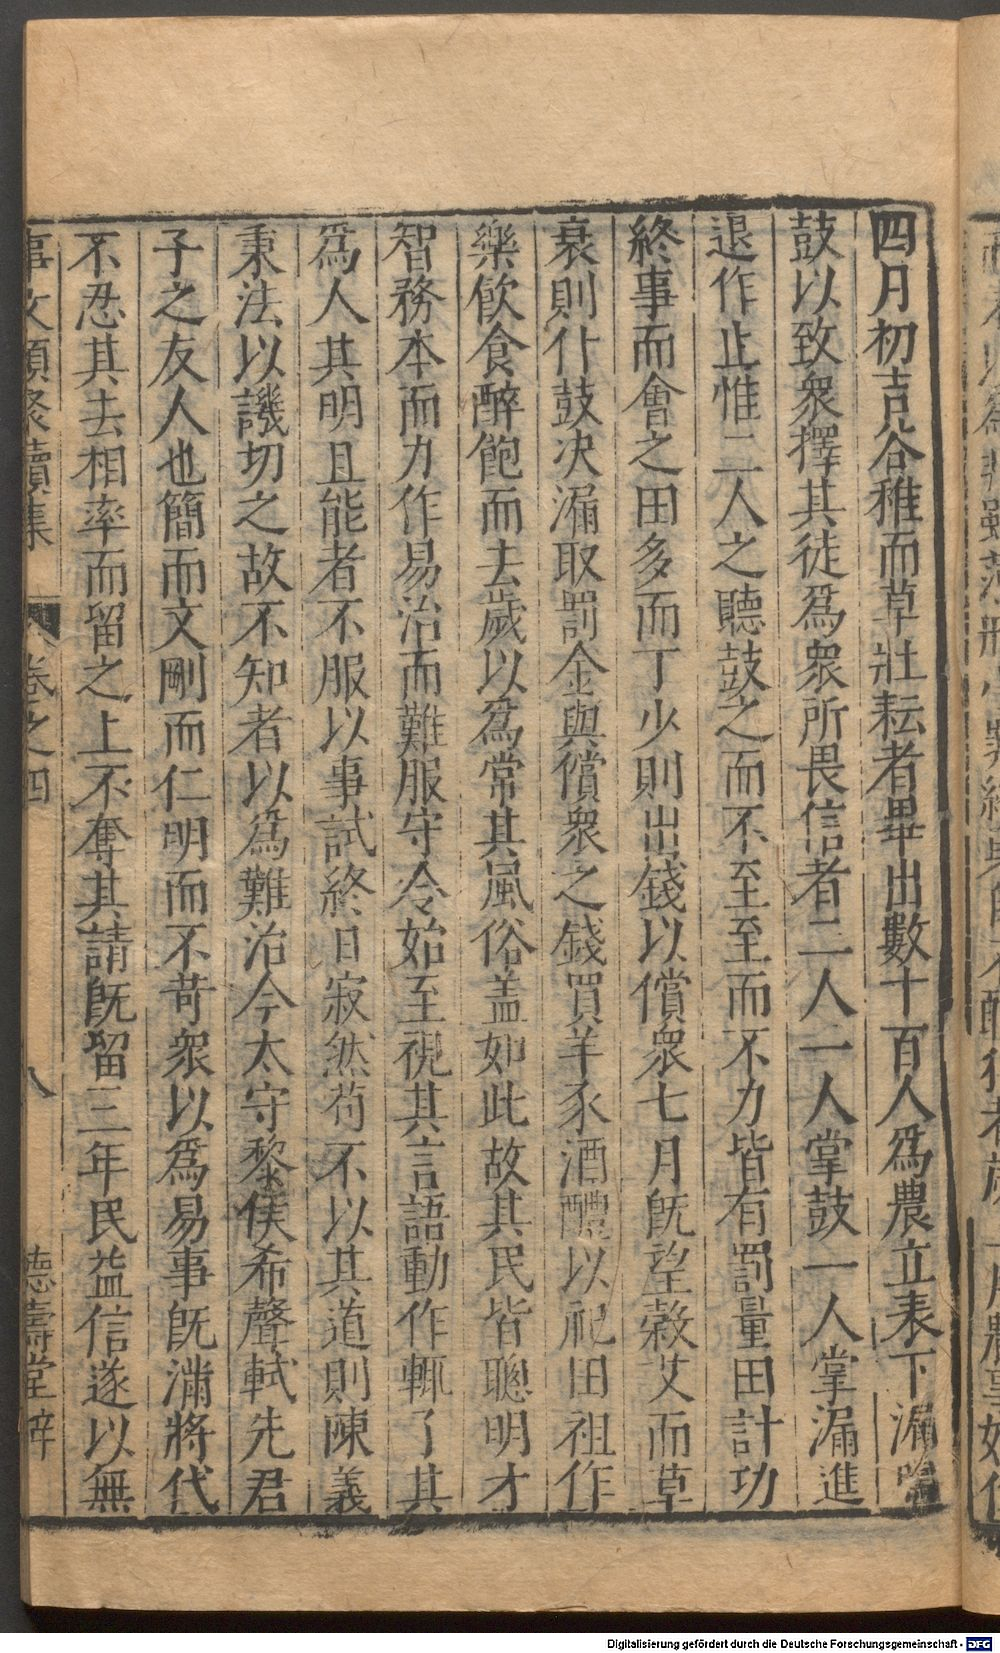 四月初吉谷稚而草壯耘者畢出數十百人爲農立表下漏鳴
鼓以致衆擇其徒爲衆所畏信者二人一人掌鼓一人掌漏進
退作止惟二人之聽鼓之而不至至而不力皆有罰量田計功
終事而會之田多而丁少則出錢以償衆七月旣望穀艾而草
衰則仆鼓决漏取罰金與償衆之錢買羊豕酒醴以祀田祖作
樂飮食醉飽而去歲以爲常其風俗盖如此故其民皆聰明才
智務本而力作易治而難服守令始至視其言語動作輒了其
爲人其明且能者不服以事試終日寂然苟不以其道則陳義
秉法以譏切之故不知者以爲難治今太守黎侯希聲軾先君
子之友人也簡而文剛而仁明而不苛衆以爲易事旣滿將代
不忍其去相率而留之上不奪其請旣留三年民益信遂以無
事文類聚續集 卷之四 八 德壽堂梓
Digitalisierung gefördert durch die Deutsche Forschungsgemeinschaft - DFG